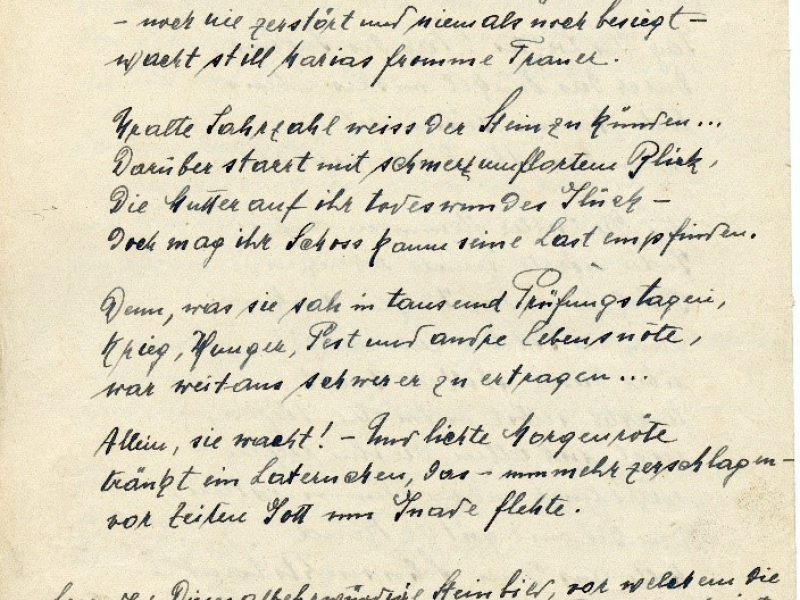 - noch nie zerstört und niemals noch besiegt -
wacht still Marias fromme Trauer.
Uralte Jahrzahl weiss der Stein zu künden...
Darüber starrt mit schmerzumflortem Blick,
Die Mutter auf ihr todeswundes Glück -
Doch mag ihr Schoss kaum seine Last empfinden.
Denn, was sie sah in tausend Prüfungstagen,
Krieg, Hunger, Pest und andre Lebensnöte,
war weitaus schwerer zu ertragen...
Allein, sie wacht! - Und lichte Morgenröte
tränkt ein Laternchen, das - nunmehr zerschlagen -
vor Zeiten Gott um Gnade flehte.
Dieses altehrwürdige Steinbild, vor welchem die